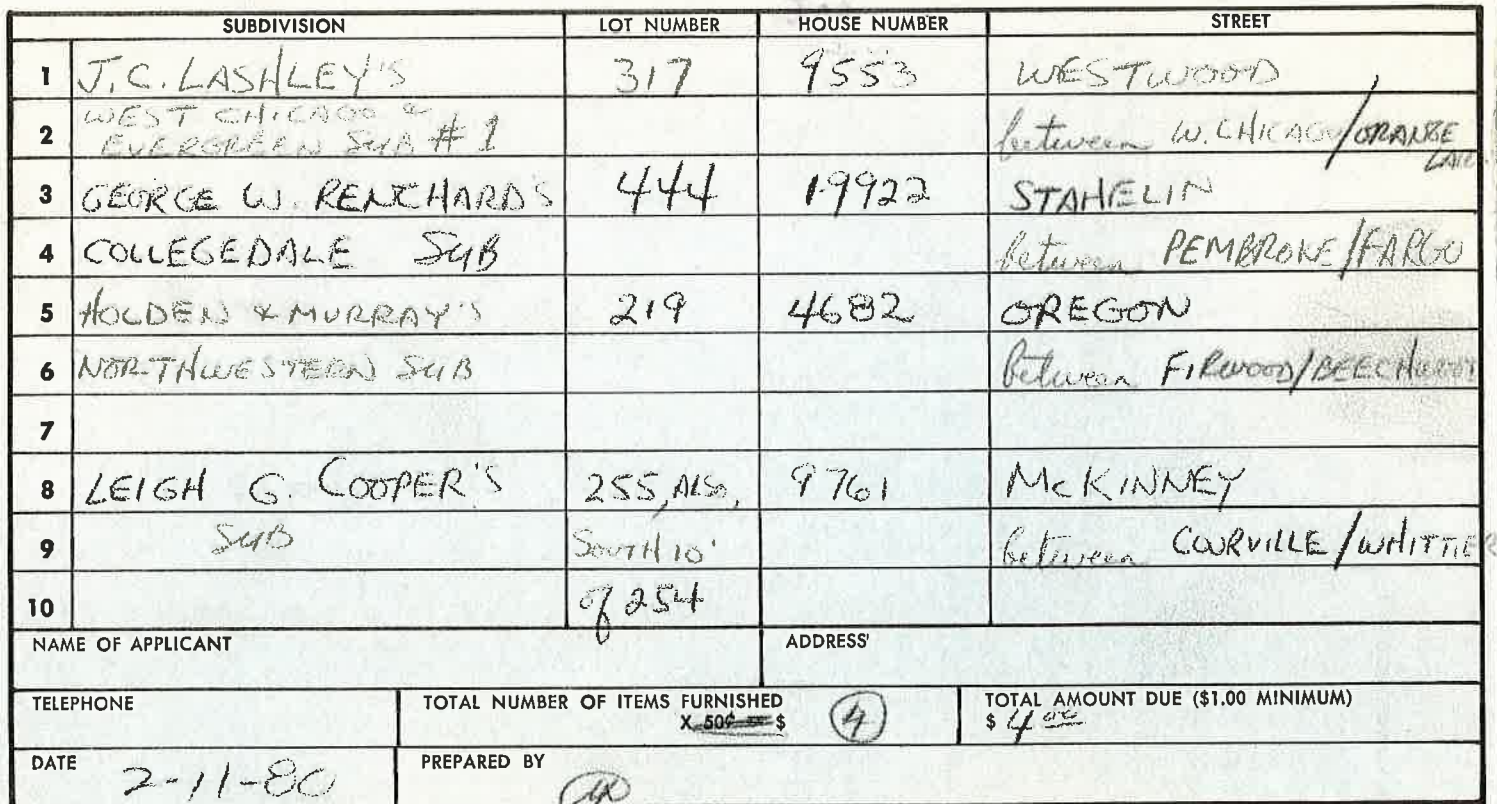 SUBDIVISION LOT NUMBER HOUSE NUMBER STREET
1 J.C. LASHLEY'S 317 9553 WESTWOOD
2 WEST CHICAGO &
EVERGREEN SUB #1 between W. CHICAGO/ORANGE
3 GEORGE W. RENCHARD'S 444 19922 STAHELIN
4 COLLEGEDALE SUB between PEMBROKE/FARGO
5 HOLDEN & MURRAY'S 219 4682 OREGON
6 NORTHWESTERN SUB between FIRWOOD/BEECHWOOD
7
8 LEIGH G. COOPER'S 255, ALSO, 9761 McKINNEY
9 SUB SOUTH 10' between COURVILLE/WHITTIER
10 of 254
NAME OF APPLICANT ADDRESS
TELEPHONE TOTAL NUMBER OF ITEMS FURNISHED TOTAL AMOUNT DUE ($1.00 MINIMUM)
X 50¢ = $ 4 $ 4 00
DATE 2-11-80 PREPARED BY